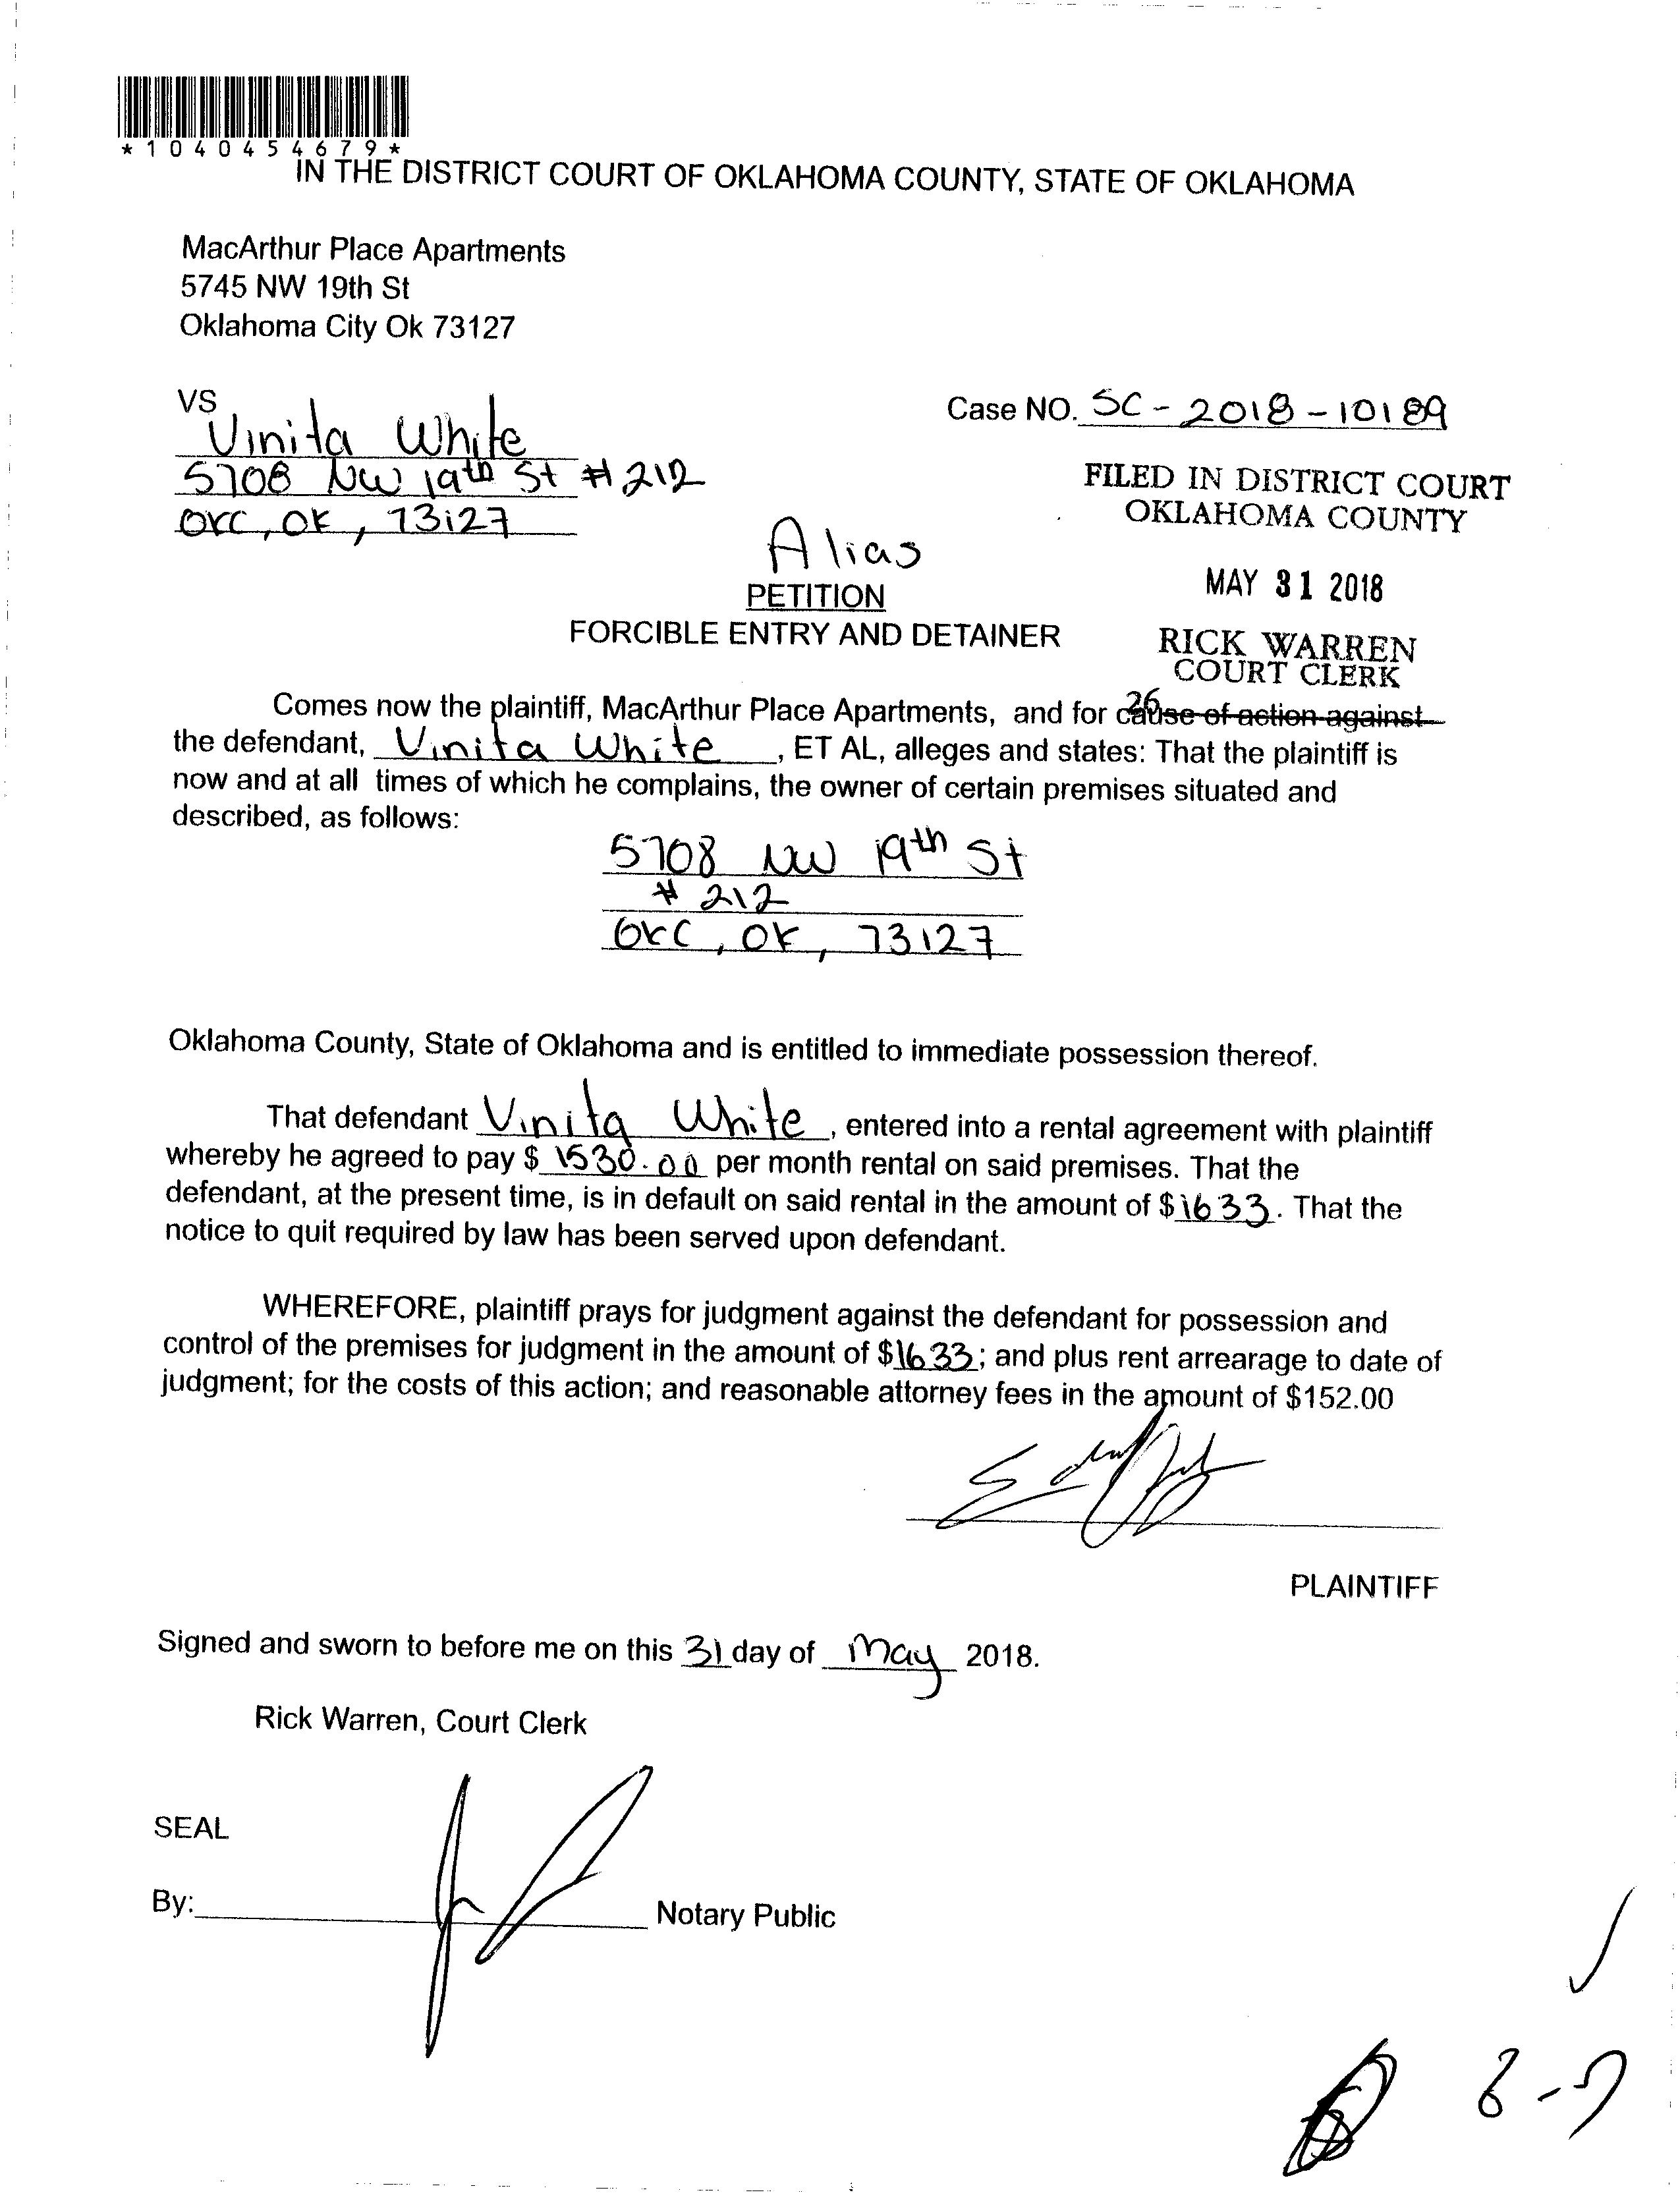 *1040454679*
IN THE DISTRICT COURT OF OKLAHOMA COUNTY, STATE OF OKLAHOMA
MacArthur Place Apartments
5745 NW 19th St
Oklahoma City Ok 73127
VS
Vinita White
5708 NW 19th St #212
OKC, OK, 73127
Case NO. SC-2018-10189
FILED IN DISTRICT COURT
OKLAHOMA COUNTY
MAY 31 2018
RICK WARREN
COURT CLERK
26
Alias
PETITION
FORCIBLE ENTRY AND DETAINER
Comes now the plaintiff, MacArthur Place Apartments, and for cause of action against
the defendant, Vinita White, ET AL, alleges and states: That the plaintiff is
now and at all times of which he complains, the owner of certain premises situated and
described, as follows:
5708 NW 19th St
# 212
OKC, OK, 73127
Oklahoma County, State of Oklahoma and is entitled to immediate possession thereof.
That defendant Vinita White, entered into a rental agreement with plaintiff
whereby he agreed to pay $ 1530.00 per month rental on said premises. That the
defendant, at the present time, is in default on said rental in the amount of $1633. That the
notice to quit required by law has been served upon defendant.
WHEREFORE, plaintiff prays for judgment against the defendant for possession and
control of the premises for judgment in the amount of $1633; and plus rent arrearage to date of
judgment; for the costs of this action; and reasonable attorney fees in the amount of $152.00
PLAINTIFF
Signed and sworn to before me on this 31 day of May 2018.
Rick Warren, Court Clerk
SEAL
By: Notary Public